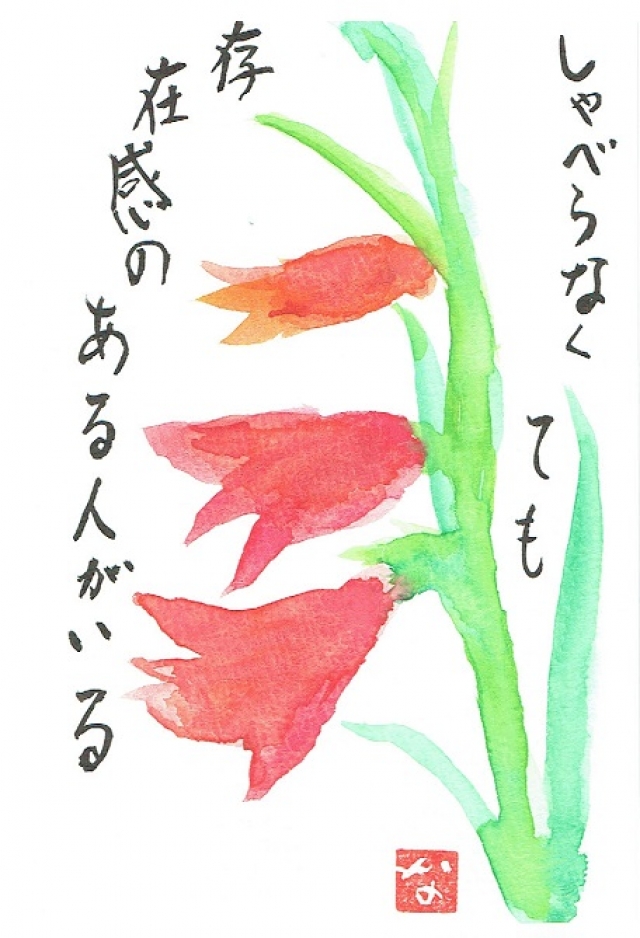 しゃべらなく
ても
存
在
感の
ある人がいる
かめ